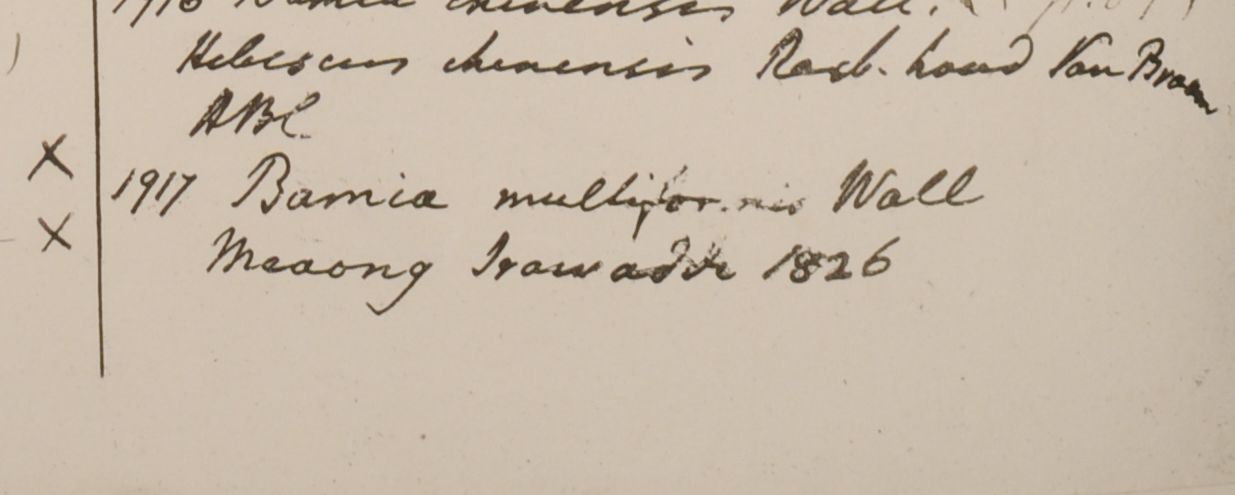 1916 Bamia chinensis Wall.
Hibiscus chinensis Roxb. haud Van Braam
HBC
X
1917 Bamia multiformis Wall
X
Meaong Irawaddi 1826